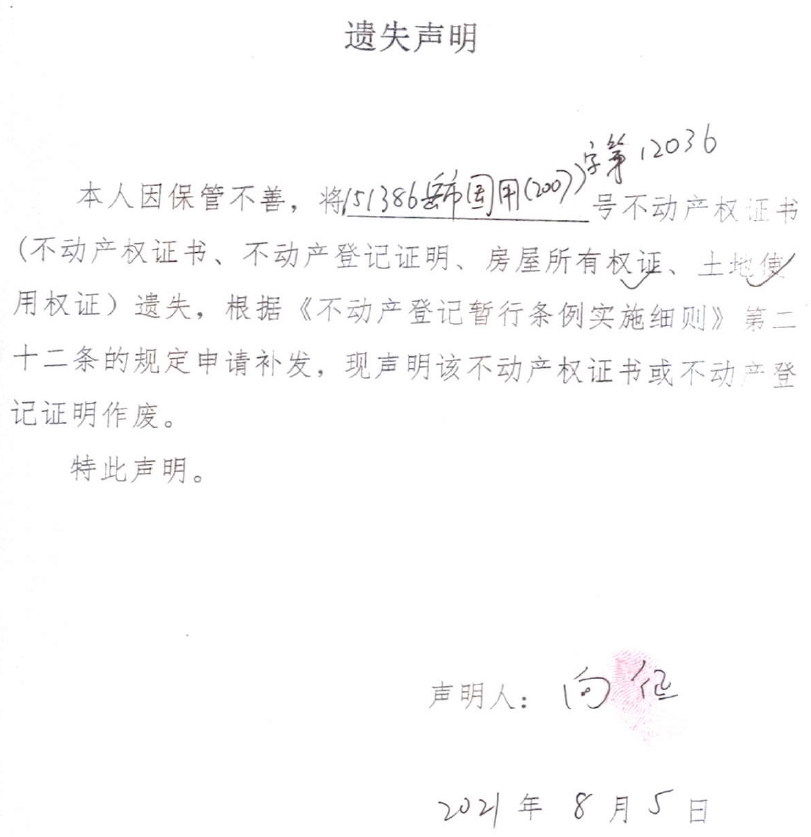 遗失声明
字第12036
本人因保管不善，将151386岳市国用(2007)号不动产权证书
(不动产权证书、不动产登记证明、房屋所有权证、土地使
用权证）遗失，根据《不动产登记暂行条例实施细则》第二
十二条的规定申请补发，现声明该不动产权证书或不动产登
记证明作废。
特此声明。
声明人：向征
2021年8月5日